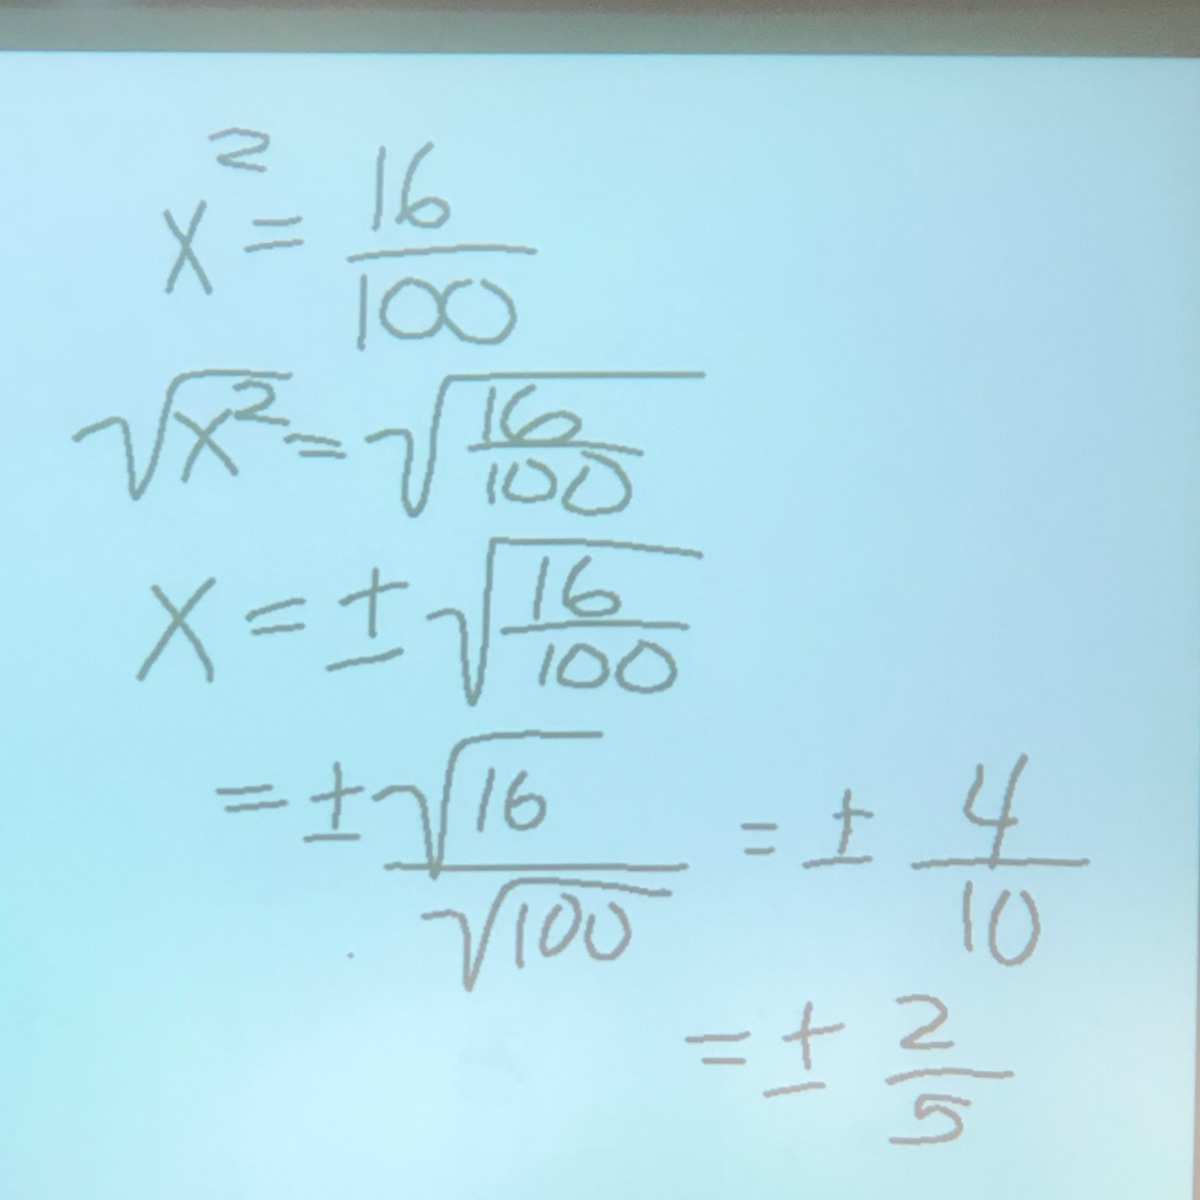 x² = 16/100
√x² = √(16/100)
x = ± √(16/100)
= ± √16/√100 = ± 4/10
= ± 2/5